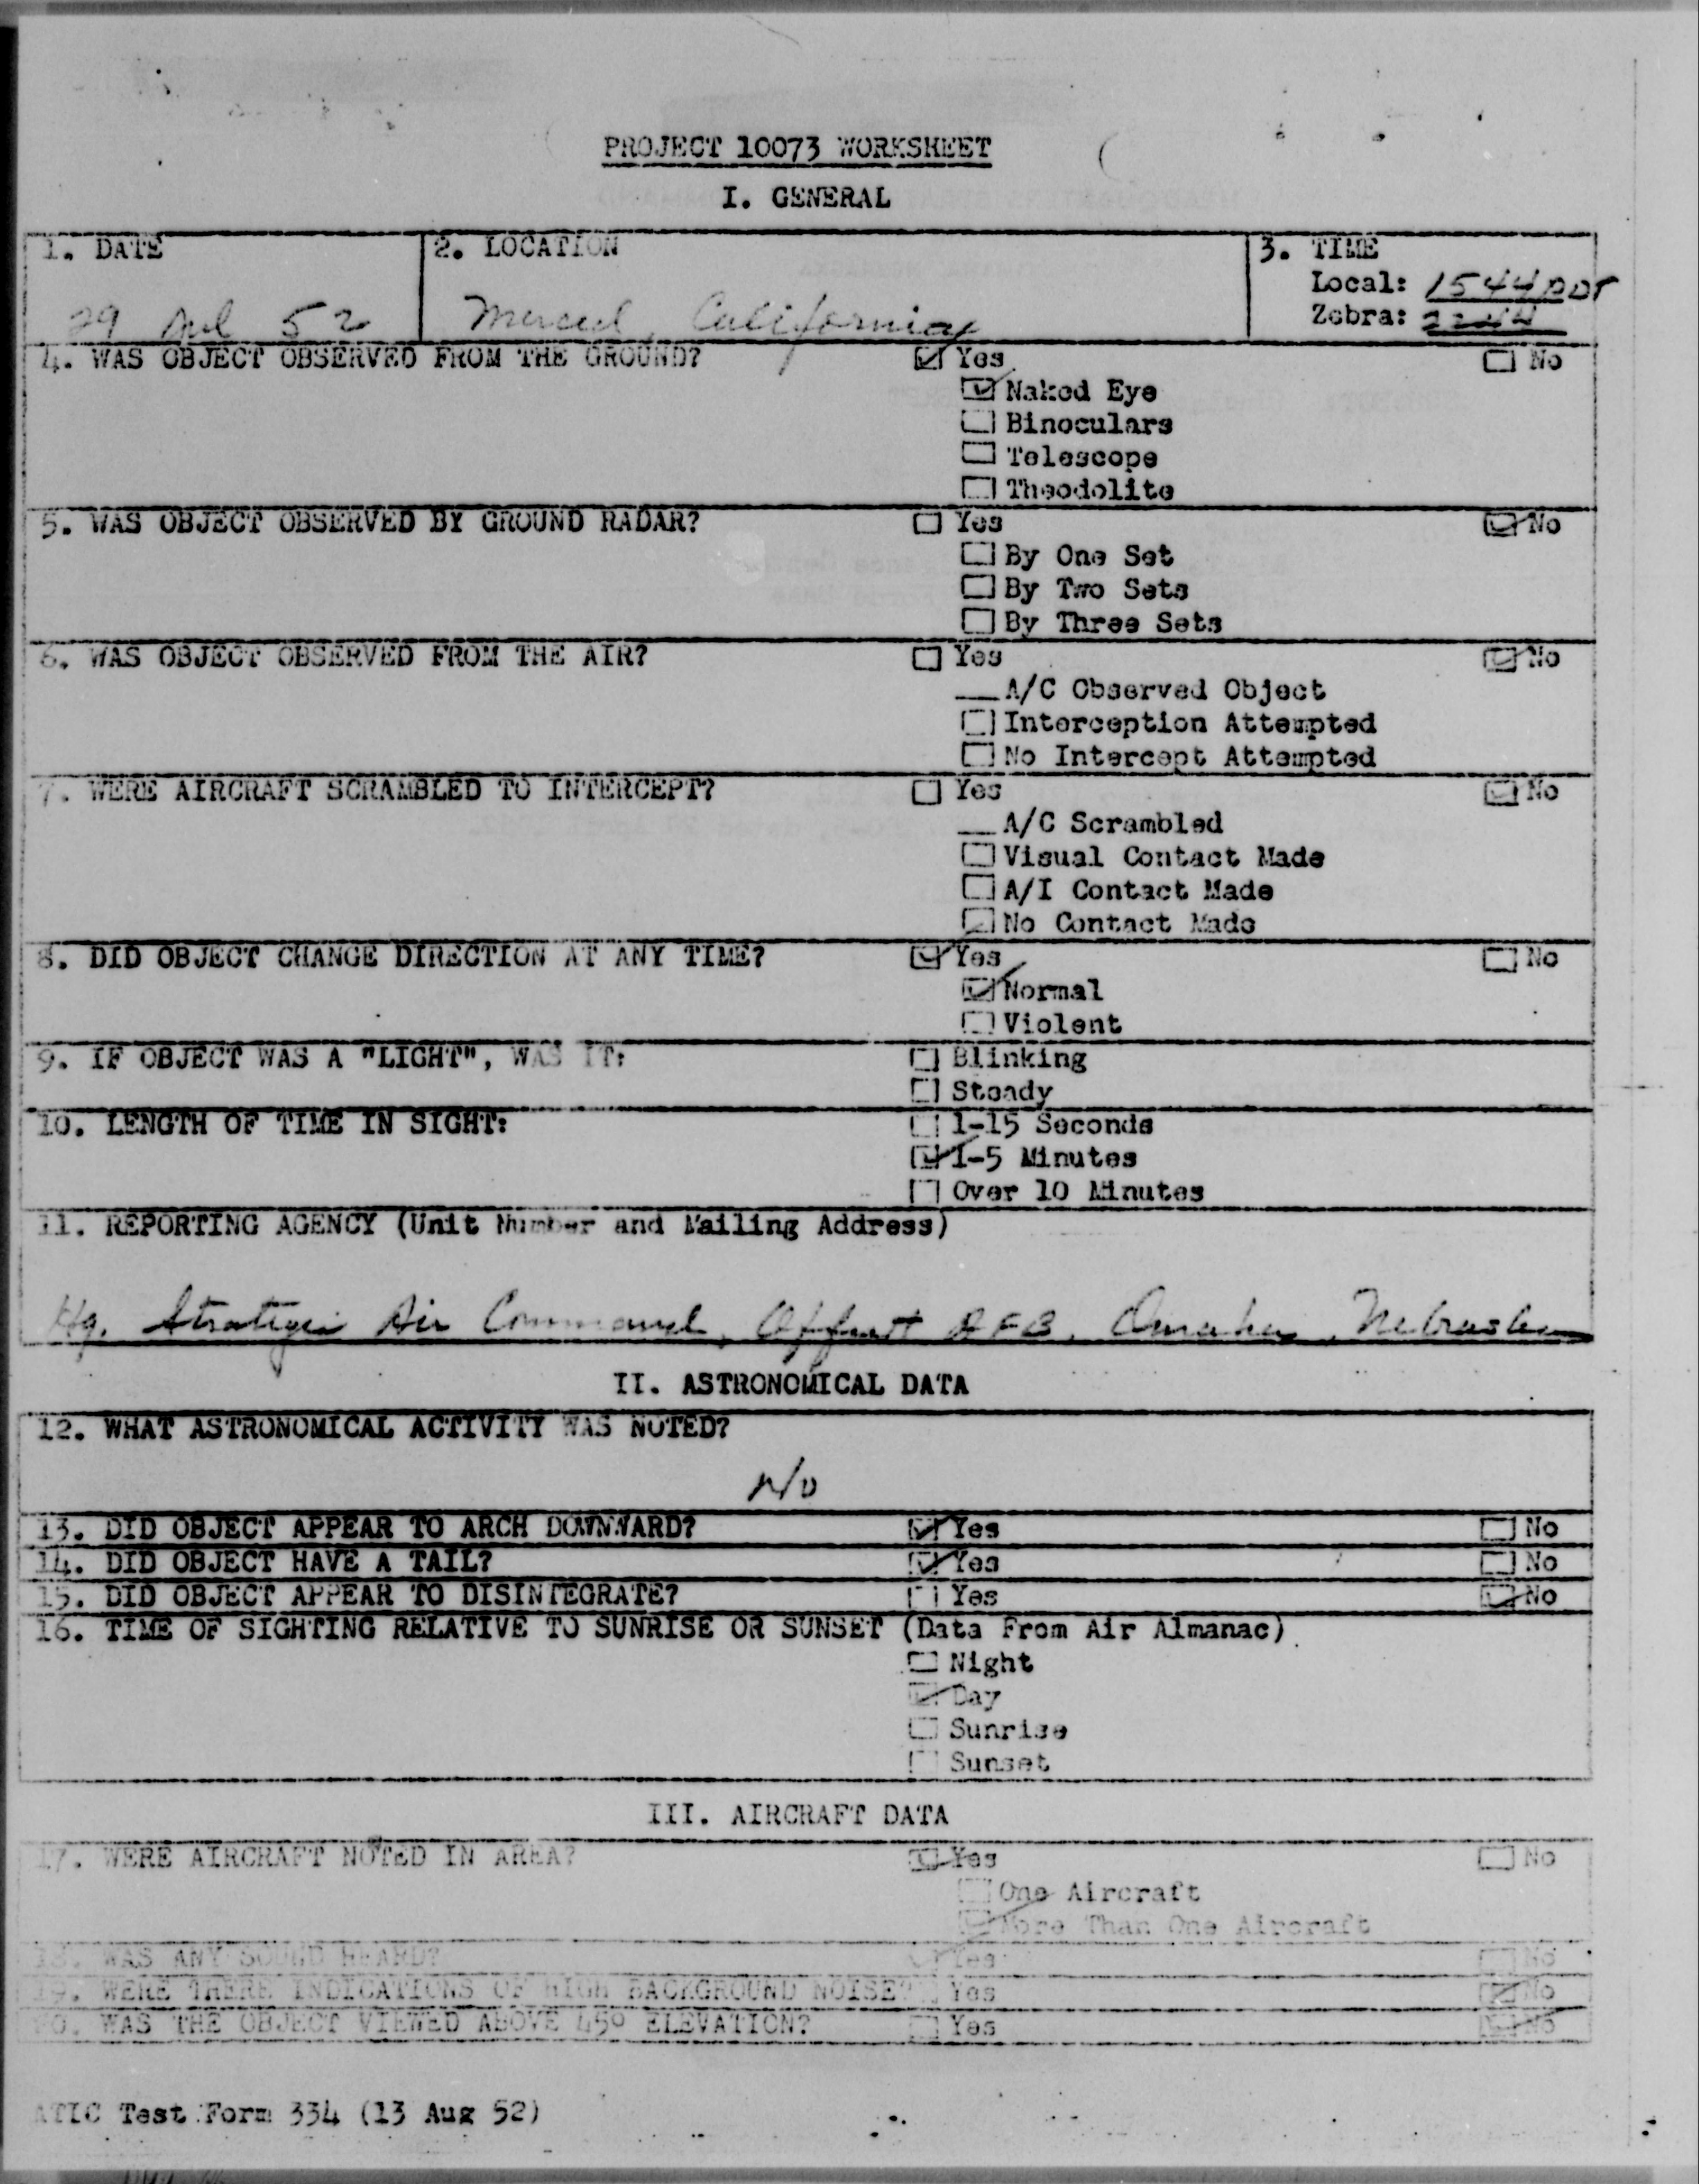 PROJECT 10073 WORKSHEET
I. GENERAL
1. DATE
29 Jul 52
2. LOCATION
Merced, California
3. TIME
Local: 1544 PDT
Zebra: 2244
4. WAS OBJECT OBSERVED FROM THE GROUND? Yes No
Naked Eye
Binoculars
Telescope
Theodolite
5. WAS OBJECT OBSERVED BY GROUND RADAR? Yes No
By One Set
By Two Sets
By Three Sets
6. WAS OBJECT OBSERVED FROM THE AIR? Yes No
A/C Observed Object
Interception Attempted
No Intercept Attempted
7. WERE AIRCRAFT SCRAMBLED TO INTERCEPT? Yes No
A/C Scrambled
Visual Contact Made
A/I Contact Made
No Contact Made
8. DID OBJECT CHANGE DIRECTION AT ANY TIME? Yes No
Normal
Violent
9. IF OBJECT WAS A "LIGHT", WAS IT: Blinking
Steady
10. LENGTH OF TIME IN SIGHT: 1-15 Seconds
1-5 Minutes
Over 10 Minutes
11. REPORTING AGENCY (Unit Number and Mailing Address)
Hq. Strategic Air Command, Offutt AFB, Omaha, Nebraska
II. ASTRONOMICAL DATA
12. WHAT ASTRONOMICAL ACTIVITY WAS NOTED?
13. DID OBJECT APPEAR TO ARCH DOWNWARD? Yes No
14. DID OBJECT HAVE A TAIL? Yes No
15. DID OBJECT APPEAR TO DISINTEGRATE? Yes No
16. TIME OF SIGHTING RELATIVE TO SUNRISE OR SUNSET (Data From Air Almanac)
Night
Day
Sunrise
Sunset
III. AIRCRAFT DATA
17. WERE AIRCRAFT NOTED IN AREA? Yes No
One Aircraft
More Than One Aircraft
18. WAS ANY SOUND HEARD? Yes No
19. WERE THERE INDICATIONS OF HIGH BACKGROUND NOISE? Yes No
20. WAS THE OBJECT VIEWED ABOVE 45° ELEVATION? Yes No
ATIC Test Form 334 (13 Aug 52)